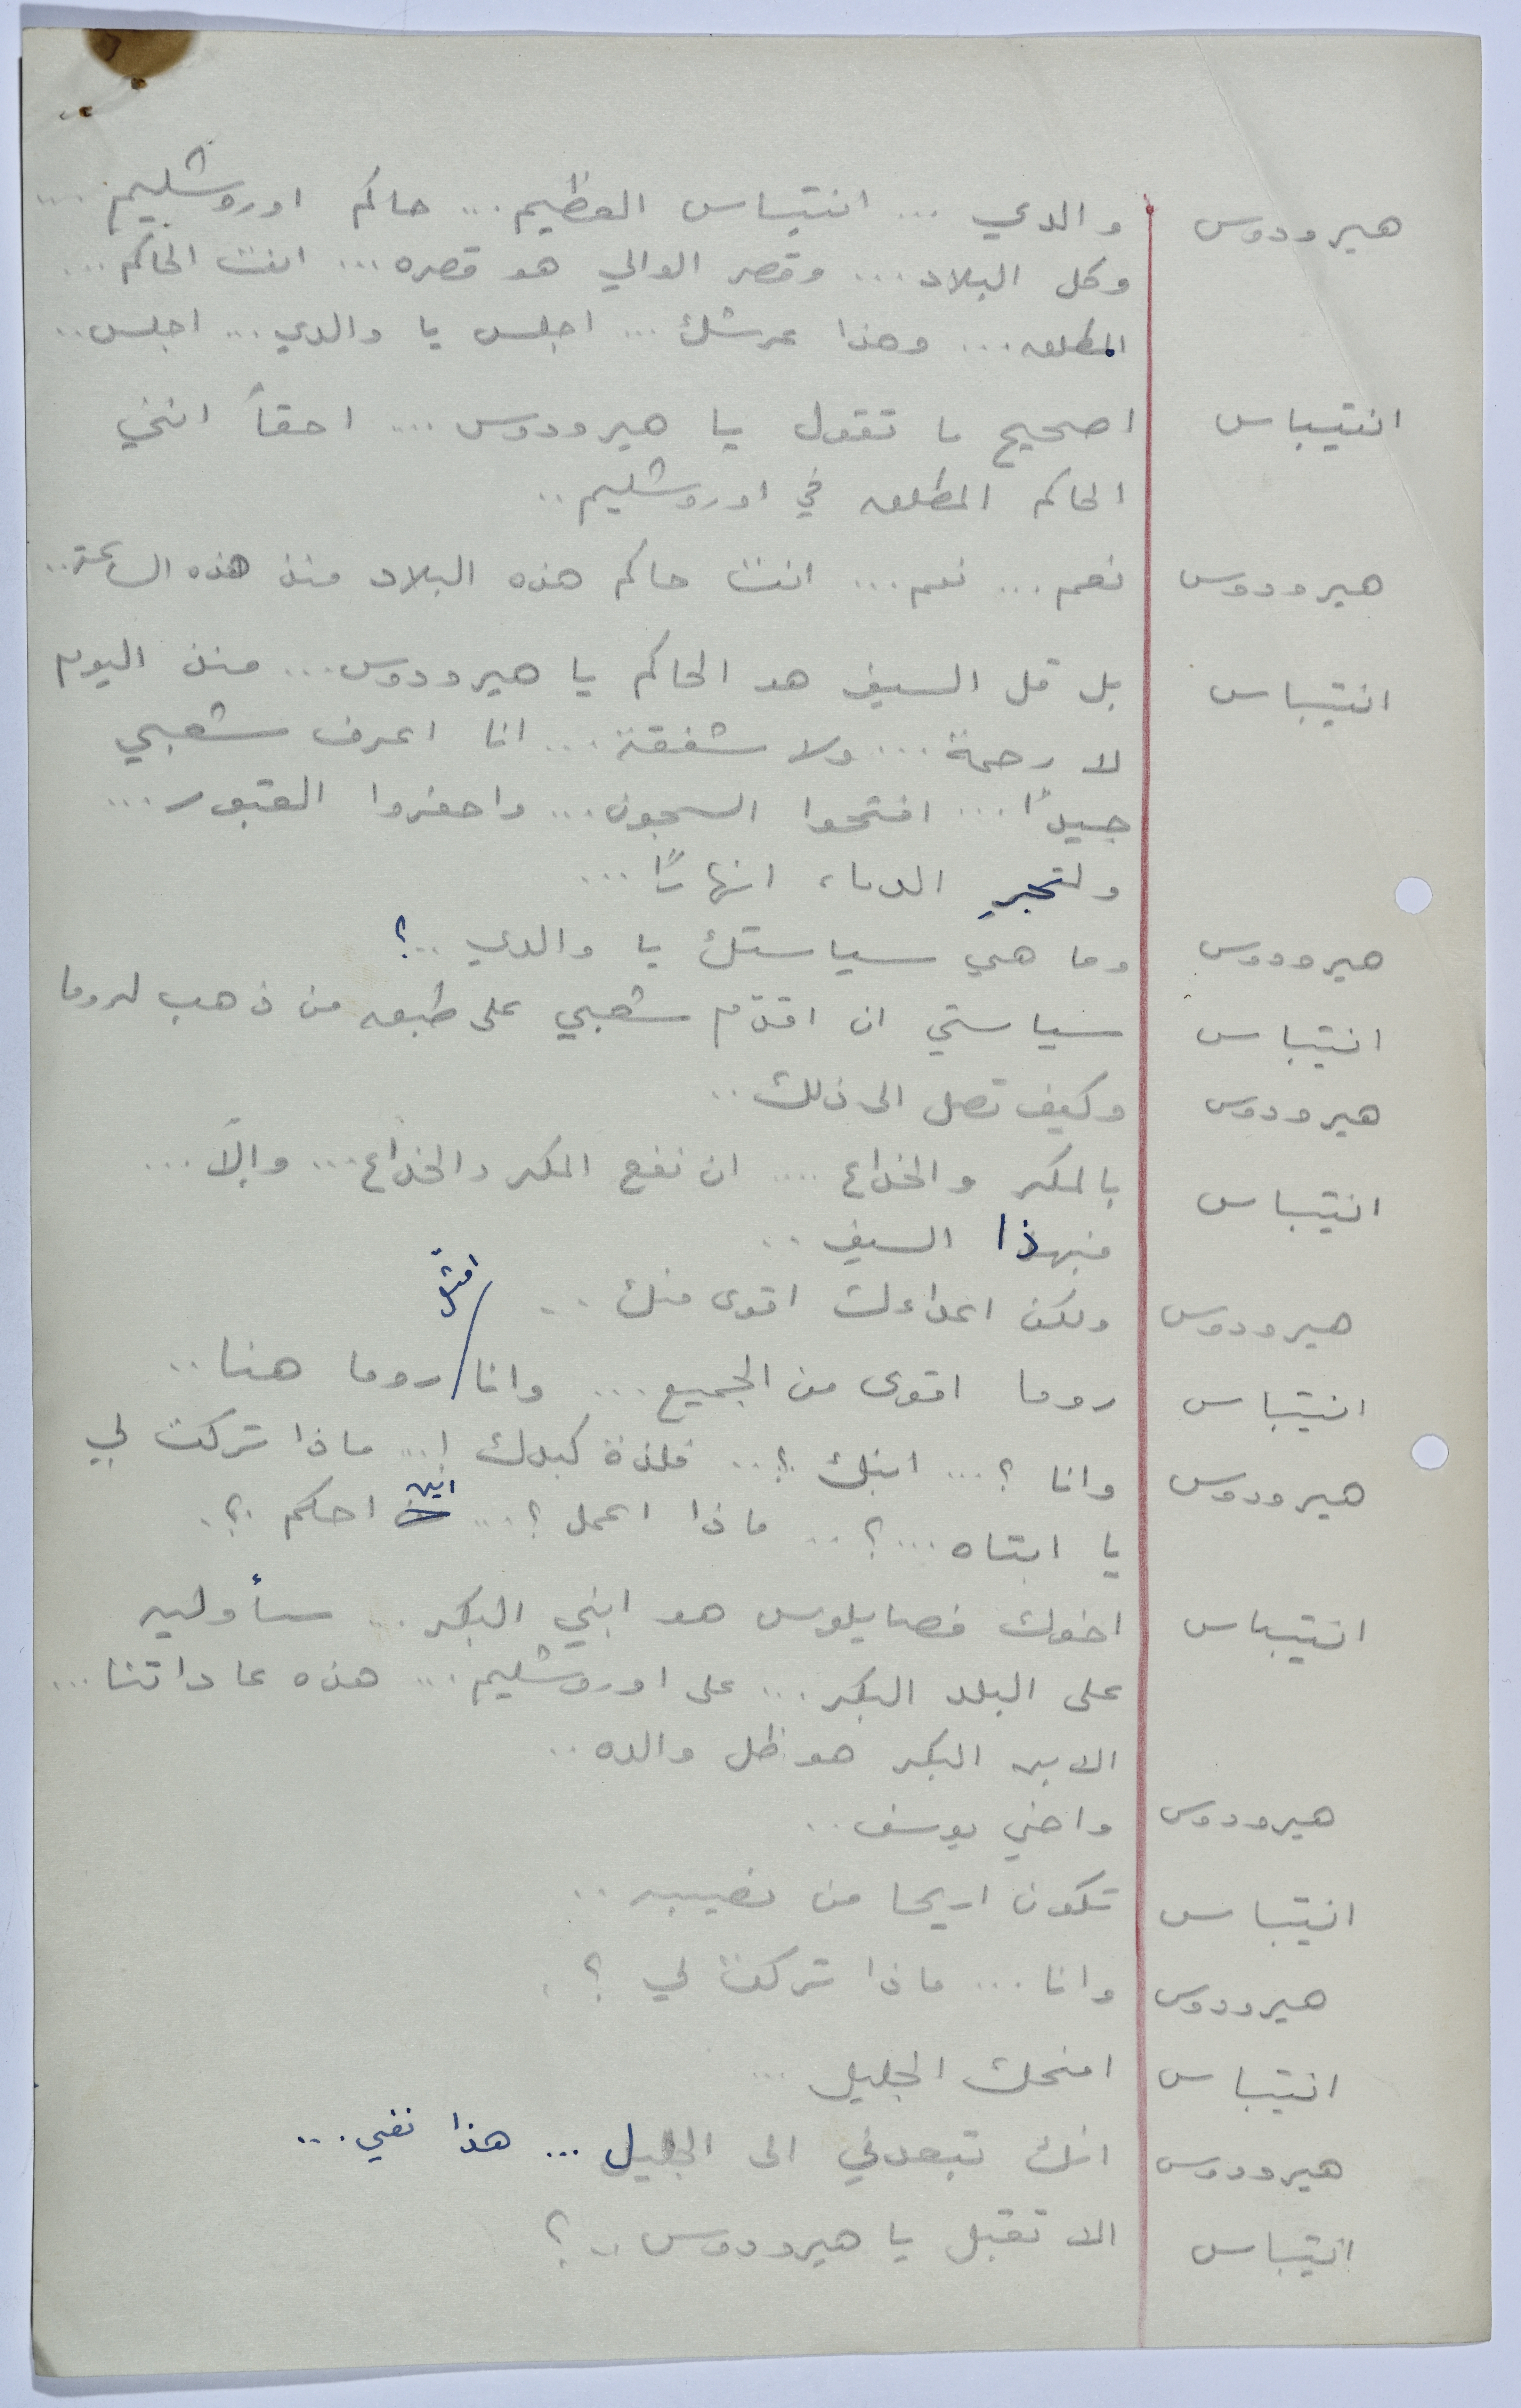 هيرودوس والدي ... انتيباس العظيم ... حاكم اوروشليم ...
وكل البلاد ... وقصر الوالي هو قصره ... انت الحاكم ...
المطلق ... وهذا عرشك ... اجلس يا والدي ... اجلس ..
انتيباس اصحيح ما تقول يا هيرودوس ... احقاً انني
الحاكم المطلق في اوروشليم ..
هيرودوس نعم ... نعم ... انت حاكم هذه البلاد منذ هذه الساعة ..
انتيباس بل قل السيف هو الحاكم يا هيرودوس ... منذ اليوم
لا رحمة ... ولا شفقة ... انا اعرف شعبي
جيداً ... افتحوا السجون ... واحفروا القبور ...
ولتجرِ الدماء انهاراً ...
هيرودوس وما هي سياستك يا والدي ..؟
انتيباس سياستي ان اقدّم شعبي على طبق من ذهب لروما
هيرودوس وكيف تصل الى ذلك ..
انتيباس بالمكر والخداع .... ان نفع المكر والخداع ... والّا ...
فبهذا السيف ..
هيرودوس ولكن اعداءك اقوى منك ..
انتيباس روما اقوى من الجميع ... وانا امثّل روما هنا ..
هيرودوس وانا ؟ ... ابنك ؟ .. فلذة كبدك ! .. ماذا تركت لي
يا ابتاه ...؟ .. ماذا اعمل ؟ ... اين احكم ؟ .
انتيباس اخوك فصايلوس هو ابني البكر .. سأوليه
على البلد البكر ... على اوروشليم ... هذه عاداتنا ...
الابن البكر هو ظل والده ..
هيرودوس واخي يوسف ..
انتيباس تكون اريحا من نصيبه ..
هيرودوس وانا ... ماذا تركت لي ؟ .
انتيباس امنحك الجليل ...
هيرودوس انك تبعدني الى الجليل ... هذا نفي ...
انتيباس الا تقبل يا هيرودوس ..؟